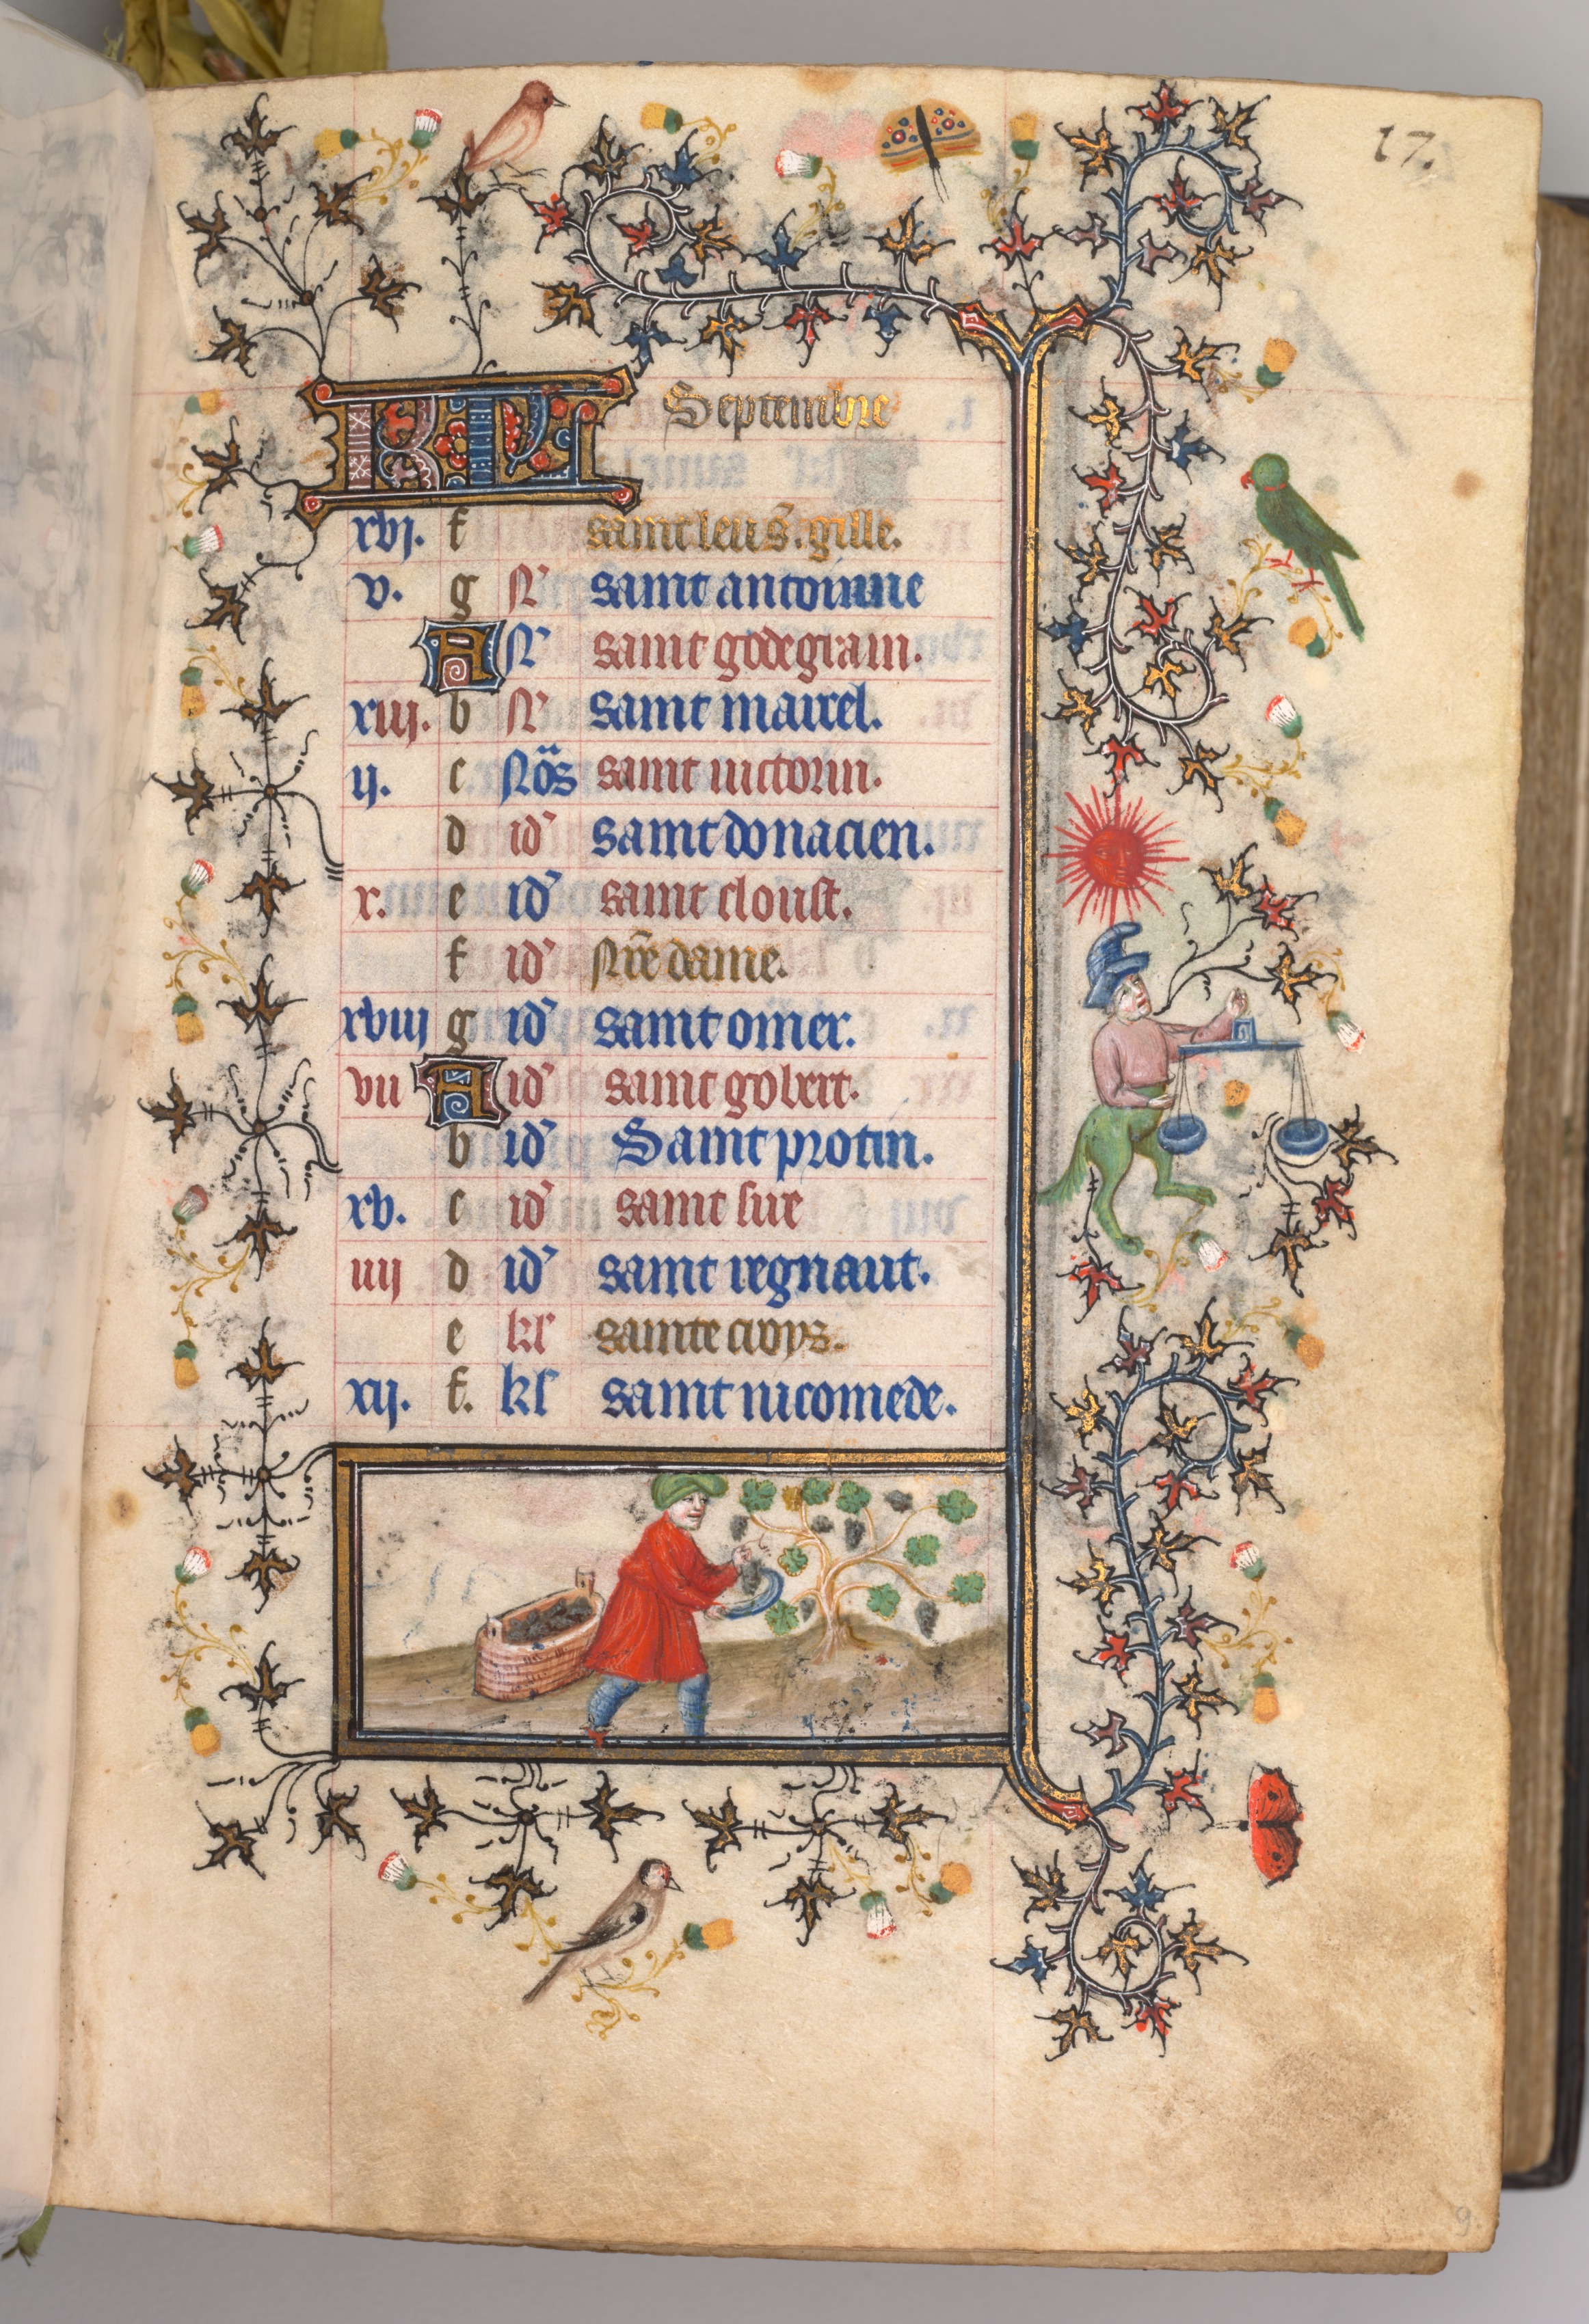 17.
KL Septembre
xvj. f saint leu s. gille.
v. g N saint antoinne
A N saint godegrain.
xiij. b N saint maurel.
ij. c Nōs saint uictorin.
d id' saint donacien.
x. e id' saint cloust.
f id' Nr̄e dame.
xviij g id' saint omer.
vii A id' saint gobert.
b id' Saint protin.
xv. c id' saint sire
iiij d id' saint regnaut.
e kl' sainte croys.
xij. f. kl saint nicomede.
9.